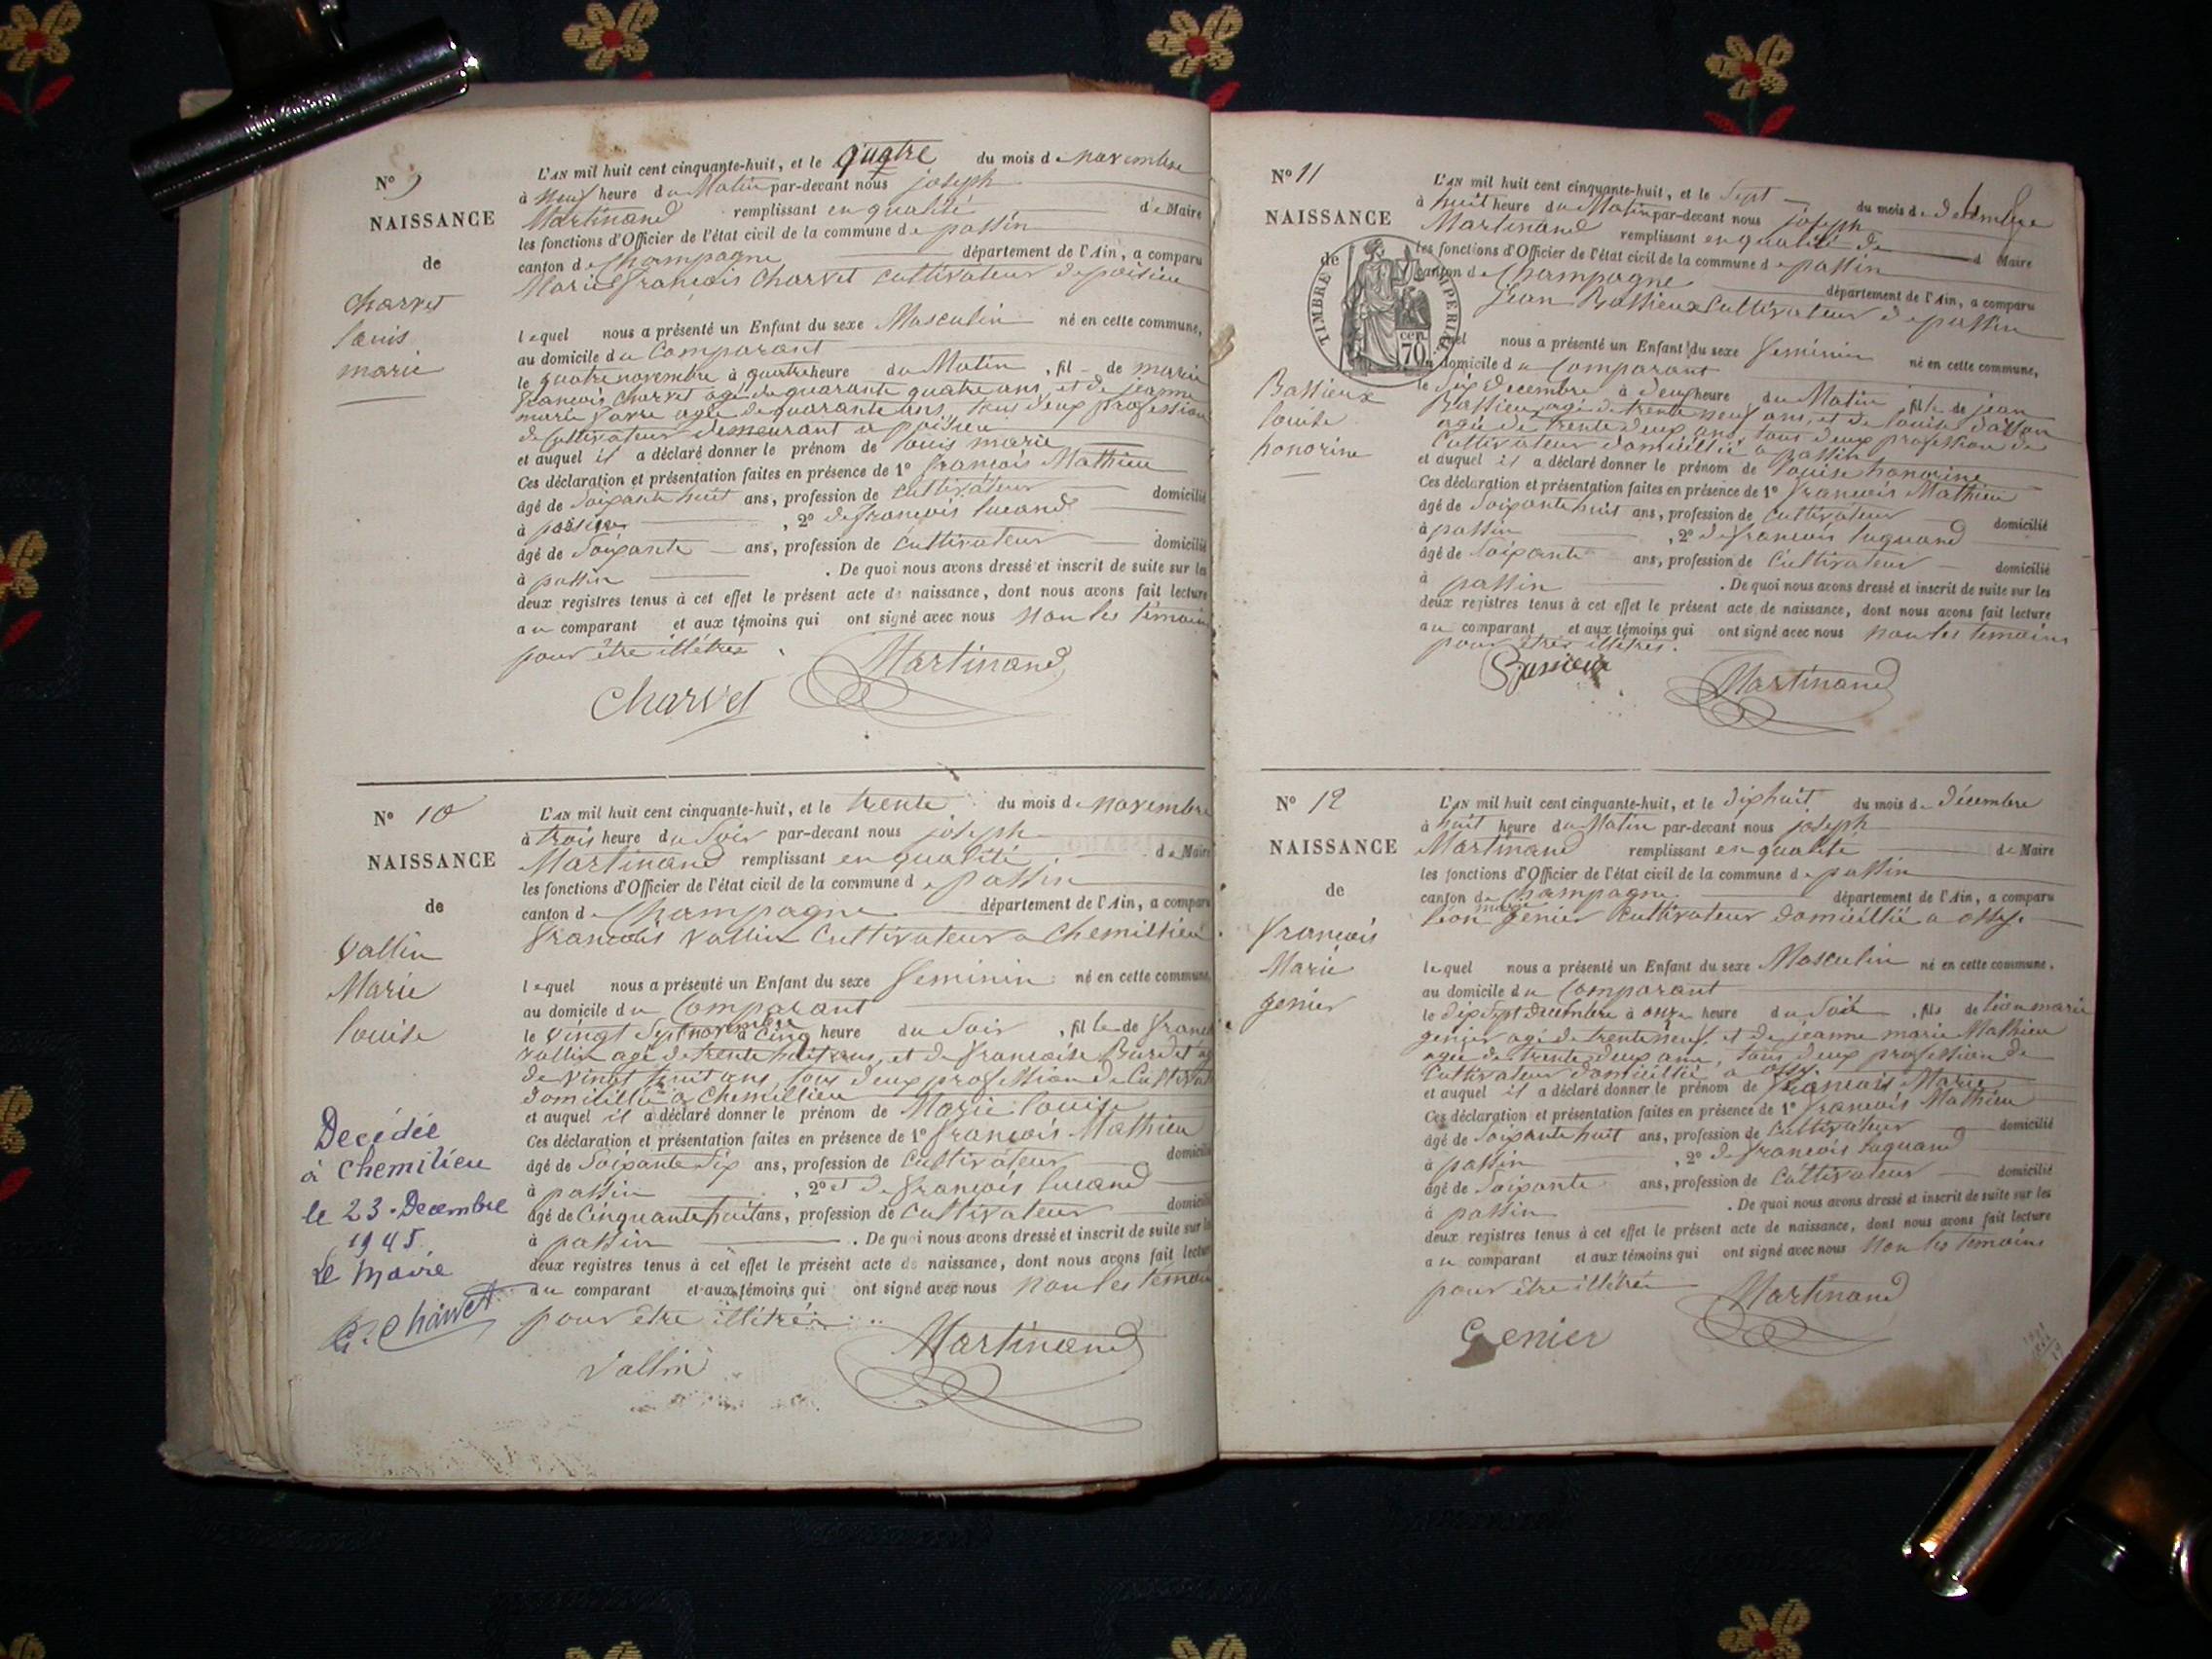 N° 9
NAISSANCE
de
Charvet
louis
marie
L'AN mil huit cent cinquante-huit, et le quatre du mois de novembre
à neuf heure du Matin par-devant nous joseph
Martinand remplissant en qualité de Maire
les fonctions d'Officier de l'état civil de la commune de passin
canton de Champagne département de l'Ain, a comparu
Marie françois Charvet cultivateur de poisieu
lequel nous a présenté un Enfant du sexe Masculin né en cette commune,
au domicile du Comparant
le quatre novembre à quatre heure du Matin, fil de marie
francois Charvet agé de quarante quatre ans, et de jeanne
marie favre agée de quarante ans, tous deux profession
de Cultivateur demeurant a poisieu
et auquel il a déclaré donner le prénom de louis marie
Ces déclaration et présentation faites en présence de 1° francois Mathieu
âgé de Soixante huit ans, profession de Cultivateur domicilié
à passin, 2° de françois lucand
âgé de Soixante ans, profession de Cultivateur domicilié
à passin. De quoi nous avons dressé et inscrit de suite sur les
deux registres tenus à cet effet le présent acte de naissance, dont nous avons fait lecture
au comparant et aux témoins qui ont signé avec nous non les témoins
pour être illétrés
Martinand
Charvet
N° 10
NAISSANCE
de
Vallin
Marie
louise
Decédée
à Chemilieu
le 23 Decembre
1945.
Le Maire
L'AN mil huit cent cinquante-huit, et le trente du mois de novembre
à trois heure du Soir par-devant nous joseph
Martinand remplissant en qualité de Maire
les fonctions d'Officier de l'état civil de la commune de passin
canton de Champagne département de l'Ain, a comparu
francois Vallin Cultivateur a Chemillieu
lequel nous a présenté un Enfant du sexe feminin né en cette commune,
au domicile du Comparant
le vingt Sept novembre à Cinq heure du Soir, fille de franc
Vallin agé de trente huit ans, et de francoise Burdet ag
de vingt huit ans, tous deux profession de Cultivat
domicillié a Chemillieu
et auquel il a déclaré donner le prénom de Marie louise
Ces déclaration et présentation faites en présence de 1° francois Mathieu
âgé de Soixante Six ans, profession de Cultivateur domicilié
à passin, 2° et de françois lucand
âgé de Cinquante huit ans, profession de Cultivateur domicilié
à passin. De quoi nous avons dressé et inscrit de suite sur les
deux registres tenus à cet effet le présent acte de naissance, dont nous avons fait lecture
au comparant et aux témoins qui ont signé avec nous non les témoin
pour être illétrés
Martinand
Vallin
N° 11
NAISSANCE
de
TIMBRE IMPERIAL
70 cen.
Bassieux
louise
honorine
L'AN mil huit cent cinquante-huit, et le Sept du mois de decembre
à huit heure du Matin par-devant nous joseph
Martinand remplissant en qualité de d Maire
les fonctions d'Officier de l'état civil de la commune de passin
canton de Champagne département de l'Ain, a comparu
jean Bassieux Cultivateur de passin
lequel nous a présenté un Enfant du sexe feminin né en cette commune,
au domicile du Comparant
le Six decembre à deux heure du Matin, fille de jean
Bassieux agé de trente neuf ans, et de louise
agée de trente deux ans, tous deux profession de
Cultivateur domicillié a passin
et auquel il a déclaré donner le prénom de louise honorine
Ces déclaration et présentation faites en présence de 1° francois Mathieu
âgé de Soixante huit ans, profession de Cultivateur domicilié
à passin, 2° de francois luquand
âgé de Soixante ans, profession de Cultivateur domicilié
à passin. De quoi nous avons dressé et inscrit de suite sur les
deux registres tenus à cet effet le présent acte de naissance, dont nous avons fait lecture
au comparant et aux témoins qui ont signé avec nous non les temoins
pour être illétrés.
Bassieux
Martinand
N° 12
NAISSANCE
de
françois
Marie
genier
L'AN mil huit cent cinquante-huit, et le dix huit du mois de décembre
à huit heure du Matin par-devant nous joseph
Martinand remplissant en qualité de Maire
les fonctions d'Officier de l'état civil de la commune de passin
canton de Champagne département de l'Ain, a comparu
léon marie genier Cultivateur domicillié a ossy
lequel nous a présenté un Enfant du sexe Masculin né en cette commune.
au domicile du Comparant
le dix Sept decembre à onze heure du Soir, fils de léon marie
genier agé de trente neuf, et de jeanne marie Mathieu
agée de trente deux ans, tous deux profession de
Cultivateur domicillié a ossy
et auquel il a déclaré donner le prénom de francois Marie
Ces déclaration et présentation faites en présence de 1° francois Mathieu
âgé de Soixante huit ans, profession de Cultivateur domicilié
à passin, 2° de francois luquand
âgé de Soixante ans, profession de Cultivateur domicilié
à passin. De quoi nous avons dressé et inscrit de suite sur les
deux registres tenus à cet effet le présent acte de naissance, dont nous avons fait lecture
au comparant et aux témoins qui ont signé avec nous non les témoins
pour être illétrés
Martinand
Genier